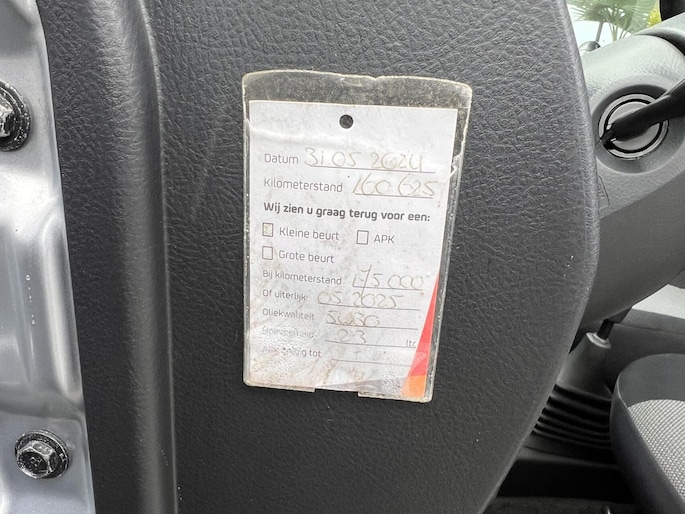 Datum 31.05 2024
Kilometerstand 160 625
Wij zien u graag terug voor een:
Kleine beurt APK
Grote beurt
Bij kilometerstand 175 000
Of uiterlijk 05 2025
Oliekwaliteit 5W30
Hoeveelheid ltr.
tot